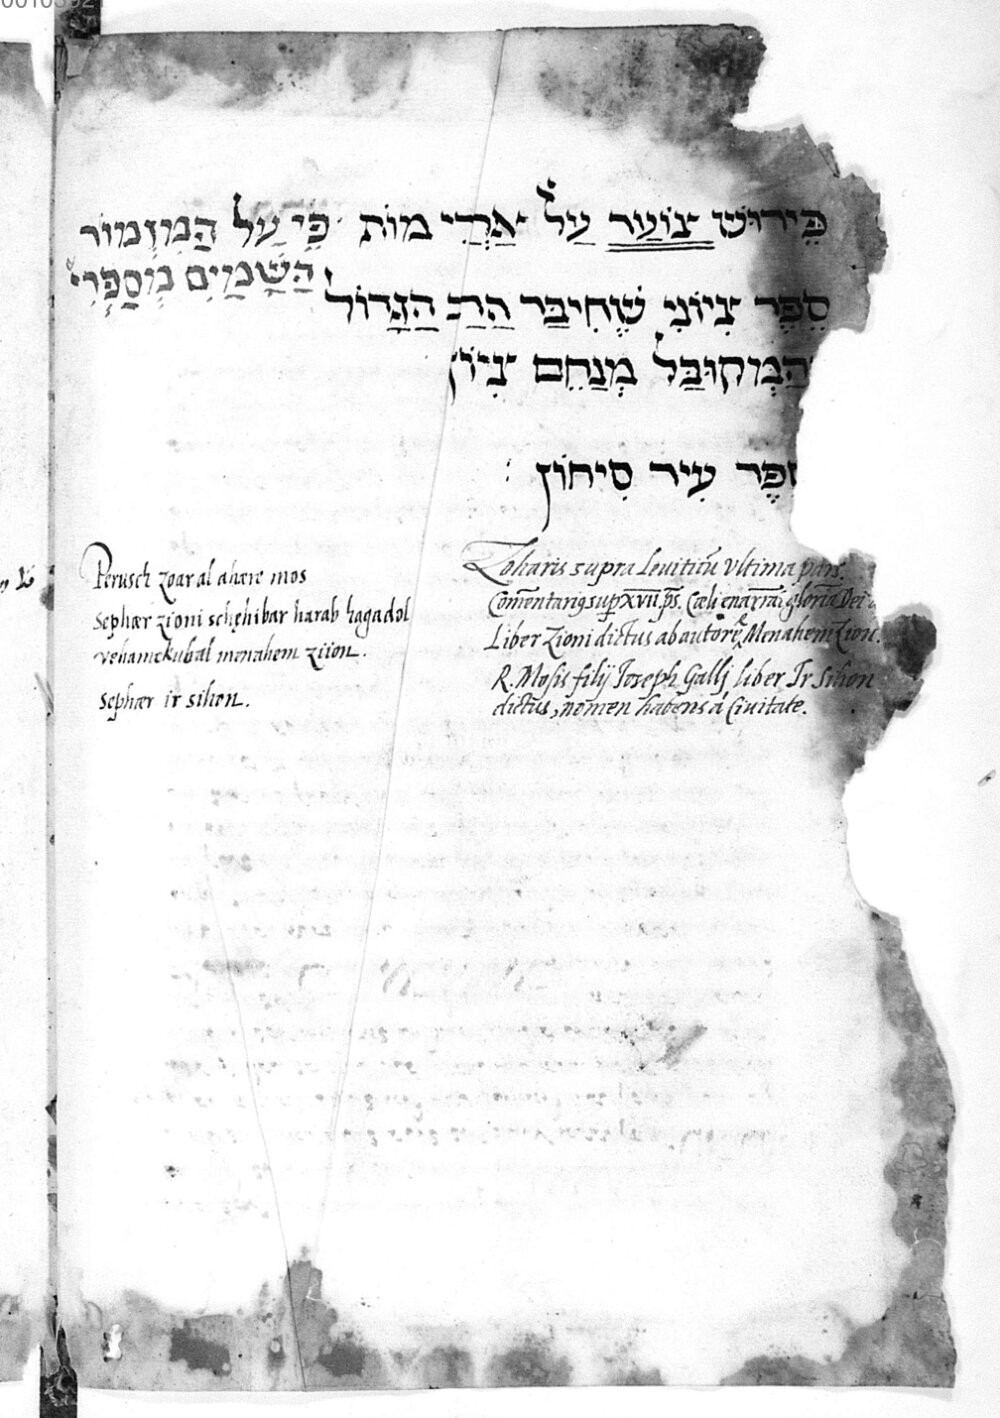 00103921
פֵּירוּשׁ צוֹעַר עַל אַחֲרֵי מוֹת פִּי עַל הַמִּזְמוֹר
הַשָּׁמַיִם מְסַפְּרִי
סֵפֶר צִיוֹנִי שֶׁחִיבַּר הַרַב הַגָּדוֹל
הַמְּקוּבַּל מְנַחֵם צִיוֹן
סֵפֶר עִיר סִיחוֹן
Perusch zoar al ahære mos
sephær zioni schehibar harab hagadol
vehamekubal menahem ziion.
sephær ir sihon.
Zoharis supra Leuiticū vltima pars.
Comēntarius sup XVII ps. Cœli enarrāt gloria Dei
Liber Zioni dictus ab autore Menahem Zion.
R. Mosis filij Joseph Galli liber Ir Sihon
dictus, nomen habens á Ciuitate.